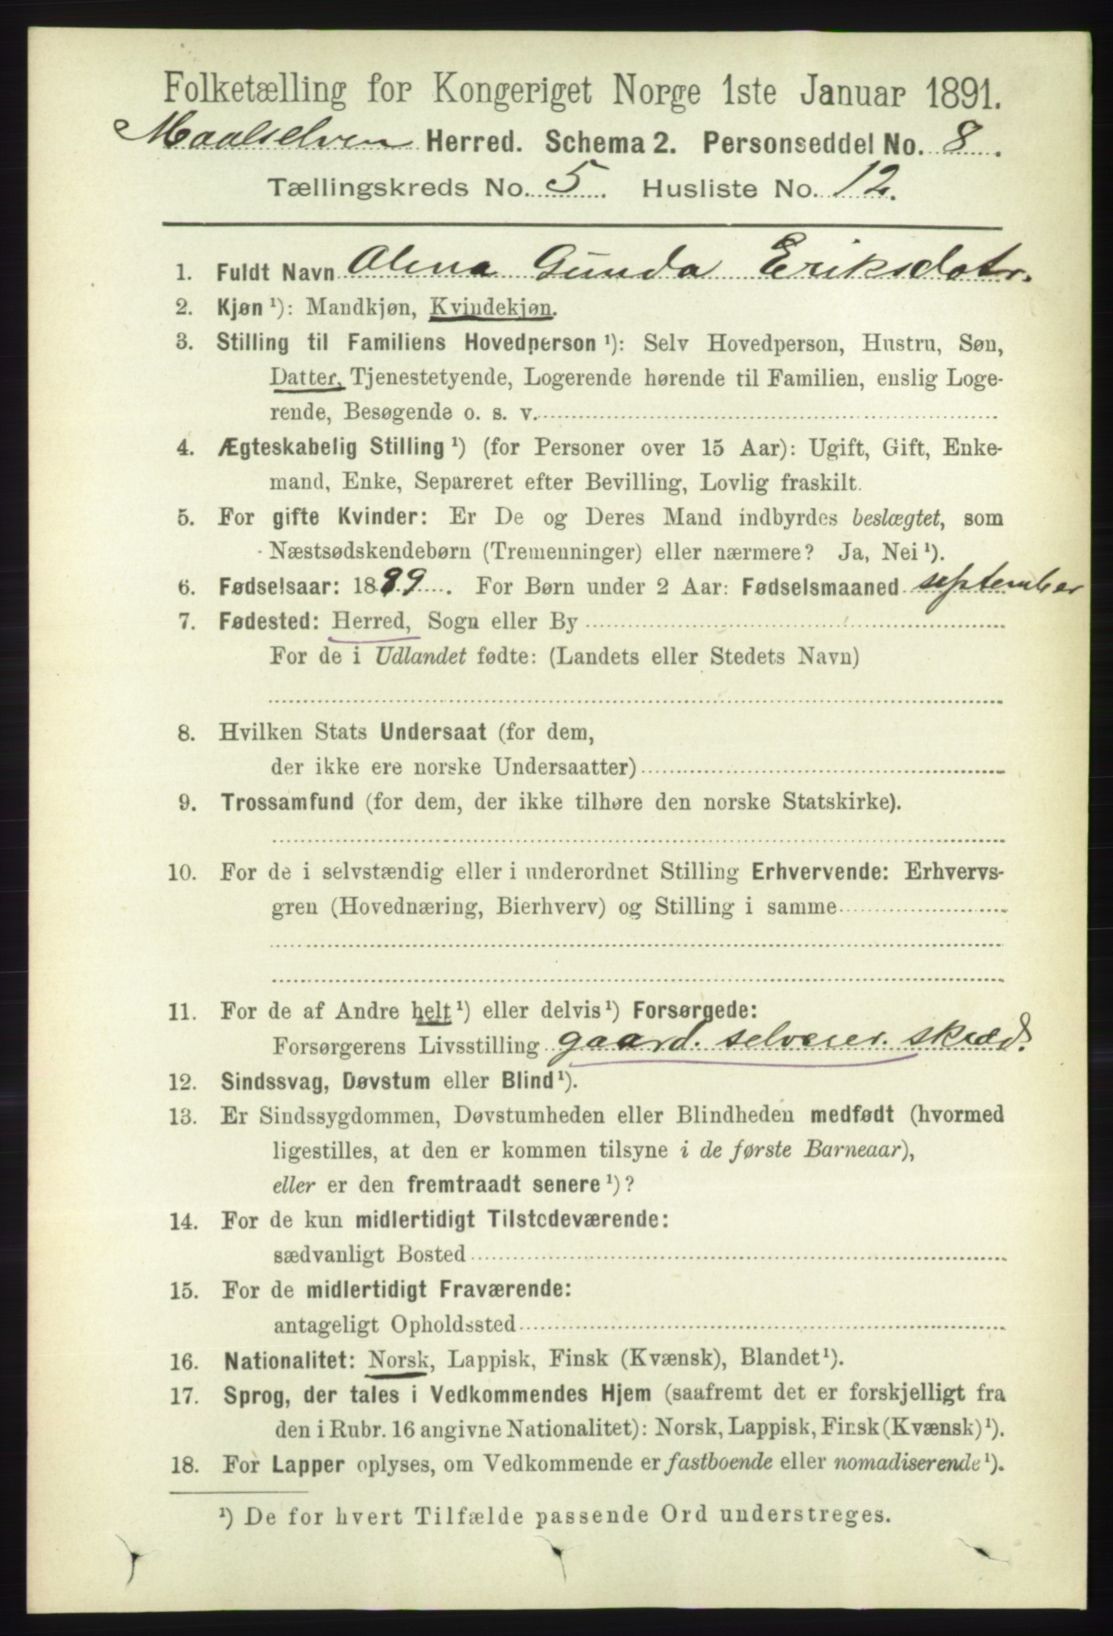 Folketælling for Kongeriget Norge 1ste Januar 1891.
Maalselven Herred. Schema 2. Personseddel No. 8.
Tællingskreds No. 5. Husliste No. 12.
1. Fuldt Navn Olena Gunda Eriksdatr.
2. Kjøn ¹): Mandkjøn, Kvindekjøn.
3. Stilling til Familiens Hovedperson ¹): Selv Hovedperson, Hustru, Søn,
Datter, Tjenestetyende, Logerende hørende til Familien, enslig Loge-
rende, Besøgende o. s. v.
4. Ægteskabelig Stilling ¹) (for Personer over 15 Aar): Ugift, Gift, Enke-
mand, Enke, Separeret efter Bevilling, Lovlig fraskilt.
5. For gifte Kvinder: Er De og Deres Mand indbyrdes beslægtet, som
Næstsødskendebørn (Tremenninger) eller nærmere? Ja, Nei ¹).
6. Fødselsaar: 1889. For Børn under 2 Aar: Fødselsmaaned september
7. Fødested: Herred, Sogn eller By
For de i Udlandet fødte: (Landets eller Stedets Navn)
8. Hvilken Stats Undersaat (for dem,
der ikke ere norske Undersaatter)
9. Trossamfund (for dem, der ikke tilhøre den norske Statskirke).
10. For de i selvstændig eller i underordnet Stilling Erhvervende: Erhvervs-
gren (Hovednæring, Bierhverv) og Stilling i samme
11. For de af Andre helt ¹) eller delvis ¹) Forsørgede:
Forsørgerens Livsstilling gaard. selveier. skræd.
12. Sindssvag, Døvstum eller Blind ¹).
13. Er Sindssygdommen, Døvstumheden eller Blindheden medfødt (hvormed
ligestilles, at den er kommen tilsyne i de første Barneaar),
eller er den fremtraadt senere ¹)?
14. For de kun midlertidigt Tilstedeværende:
sædvanligt Bosted
15. For de midlertidigt Fraværende:
antageligt Opholdssted
16. Nationalitet: Norsk, Lappisk, Finsk (Kvænsk), Blandet ¹).
17. Sprog, der tales i Vedkommendes Hjem (saafremt det er forskjelligt fra
den i Rubr. 16 angivne Nationalitet): Norsk, Lappisk, Finsk (Kvænsk) ¹).
18. For Lapper oplyses, om Vedkommende er fastboende eller nomadiserende ¹).
¹) De for hvert Tilfælde passende Ord understreges.